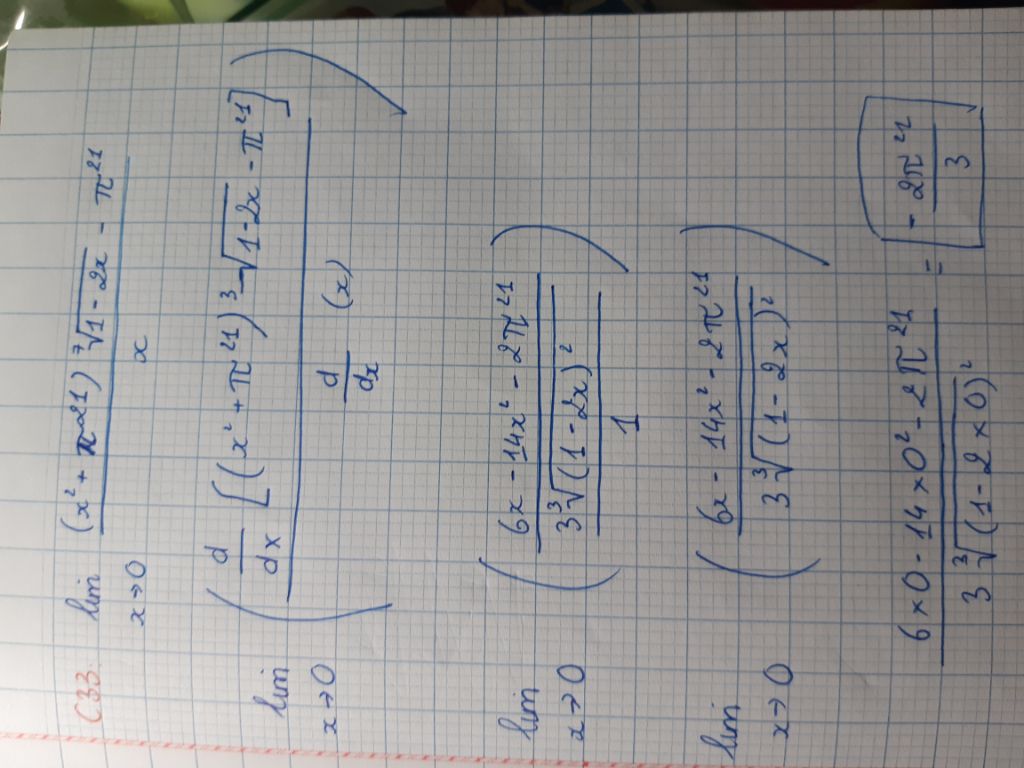 C33. lim x→0 (x² + π21) ⁷√(1-2x) - π²¹ / x
lim x→0 ( d/dx [(x² + π²¹) ³√(1-2x) - π²¹] / d/dx (x) )
lim x→0 ( 6x - 14x² - 2π²¹ / 3 ³√(1-2x)² / 1 )
lim x→0 ( 6x - 14x² - 2π²¹ / 3 ³√(1-2x)² )
6×0 - 14×0² - 2π²¹ / 3 ³√(1-2×0)² = - 2π²¹ / 3